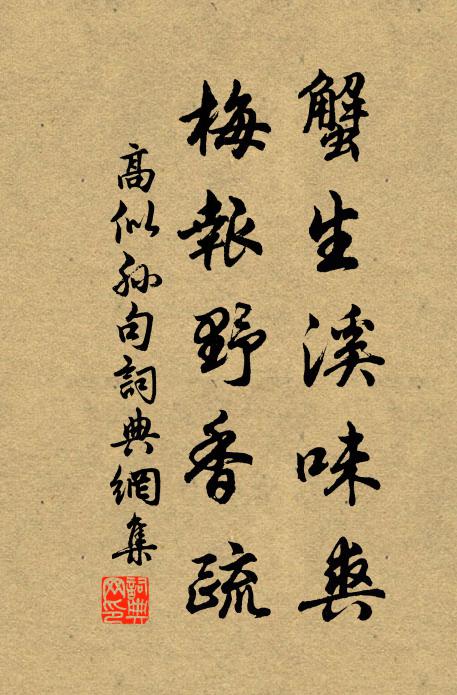 蟹生溪味爽
梅報野香疏
高似孫句詞典網集
詞典网印